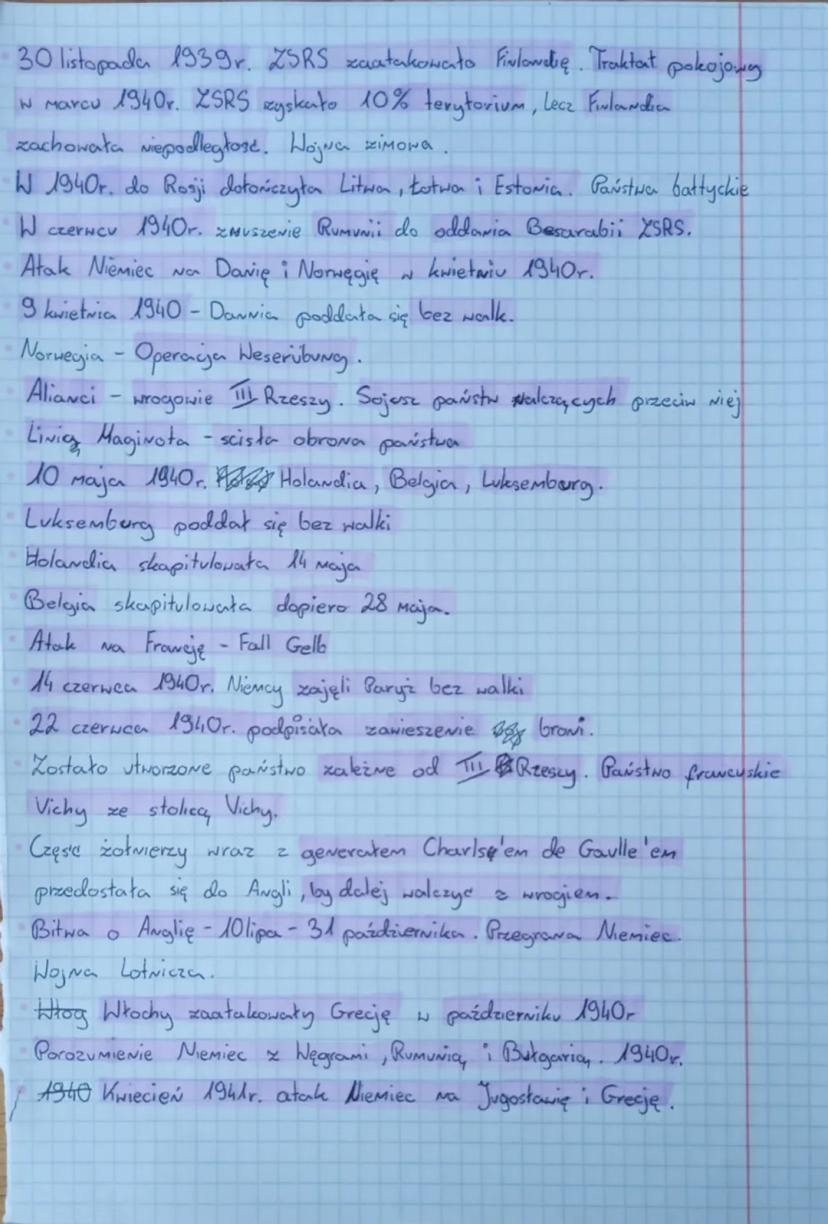 30 listopada 1939r. ZSRS zaatakowało Finlandię. Traktat pokojowy
w marcu 1940r. ZSRS zyskało 10% terytorium, lecz Finlandia
zachowała niepodległość. Wojna zimowa.
W 1940r. do Rosji dołończyła Litwa, Łotwa i Estonia. Państwa bałtyckie
W czerwcu 1940r. zmuszenie Rumunii do oddania Besarabii ZSRS.
Atak Niemiec na Danię i Norwęgię w kwietniu 1940r.
9 kwietnia 1940 - Dannia poddała się bez walk.
Norwegia - Operacja Weserübung.
Alianci - wrogowie III Rzeszy. Sojusz państw walczących przeciw niej
Linią Maginota - scisła obrona państwa
10 maja 1940r. Holandia, Belgia, Luksemburg.
Luksemburg poddał się bez walki
Holandia skapitulowała 14 maja
Belgia skapitulowała dopiero 28 maja.
Atak na Francję - Fall Gelb
14 czerwca 1940r. Niemcy zajęli Paryż bez walki
22 czerwca 1940r. podpisała zawieszenie broni.
Zostało utworzone państwo zależne od III Rzeszy. Państwo francuskie
Vichy ze stolicą Vichy.
Część żołnierzy wraz z generałem Charlse'em de Gaulle'em
przedostała się do Angli, by dalej walczyć z wrogiem.
Bitwa o Anglię - 10 lipa - 31 października. Przegrana Niemiec.
Wojna Lotnicza.
Włog Włochy zaatakowały Grecję w październiku 1940r
Porozumienie Niemiec z Węgrami, Rumunią i Bułgarią. 1940r.
1940 Kwiecień 1941r. atak Niemiec na Jugosławię i Grecję.